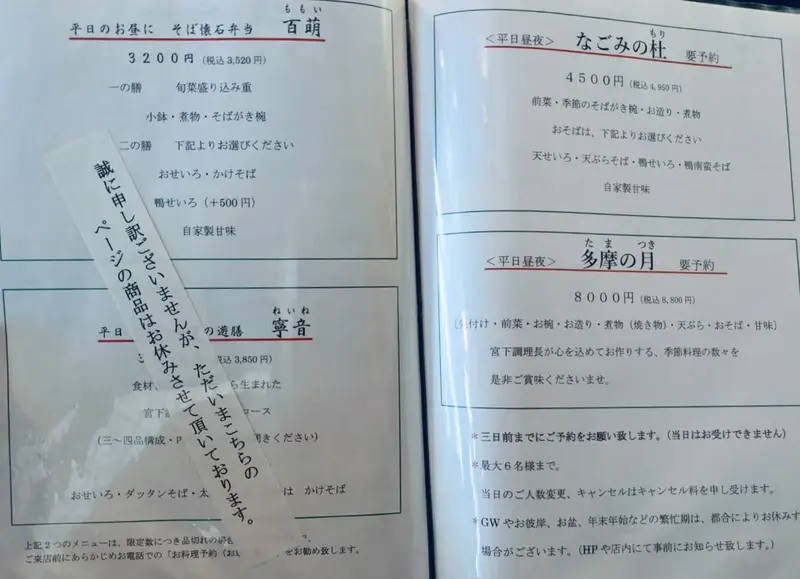 ももい
平日のお昼に そば懐石弁当 百萌
3200円(税込3,520円)
一の膳 旬菜盛り込み重
小鉢・煮物・そばがき椀
二の膳 下記よりお選びください
おせいろ・かけそば
鴨せいろ(+500円)
自家製甘味
誠に申し訳ございませんが、ただいまこちらの
ページの商品はお休みさせて頂いております。
ねいね
平日 の遊膳 寧音
税込3,850円)
食材、 ら生まれた
宮下 コース
(三~四品構成・P 聞きください)
おせいろ・ダッタンそば・太 は かけそば
上記2つのメニューは、限定数につき品切れの
ご来店前にあらかじめお電話での「お料理予約(お をお勧め致します。
もり
<平日昼夜> なごみの杜 要予約
4500円(税込4,950円)
前菜・季節のそばがき椀・お造り・煮物
おそばは、下記よりお選びください
天せいろ・天ぷらそば・鴨せいろ・鴨南蛮そば
自家製甘味
たま つき
<平日昼夜> 多摩の月 要予約
8000円(税込8,800円)
付け・前菜・お椀・お造り・煮物(焼き物)・天ぷら・おそば・甘味)
宮下調理長が心を込めてお作りする、季節料理の数々を
是非ご賞味くださいませ。
*三日前までにご予約をお願い致します。(当日はお受けできません)
*最大6名様まで。
当日のご人数変更、キャンセルはキャンセル料を申し受けます。
*GWやお彼岸、お盆、年末年始などの繁忙期は、都合によりお休みす
場合がございます。(HPや店内にて事前にお知らせ致します。)